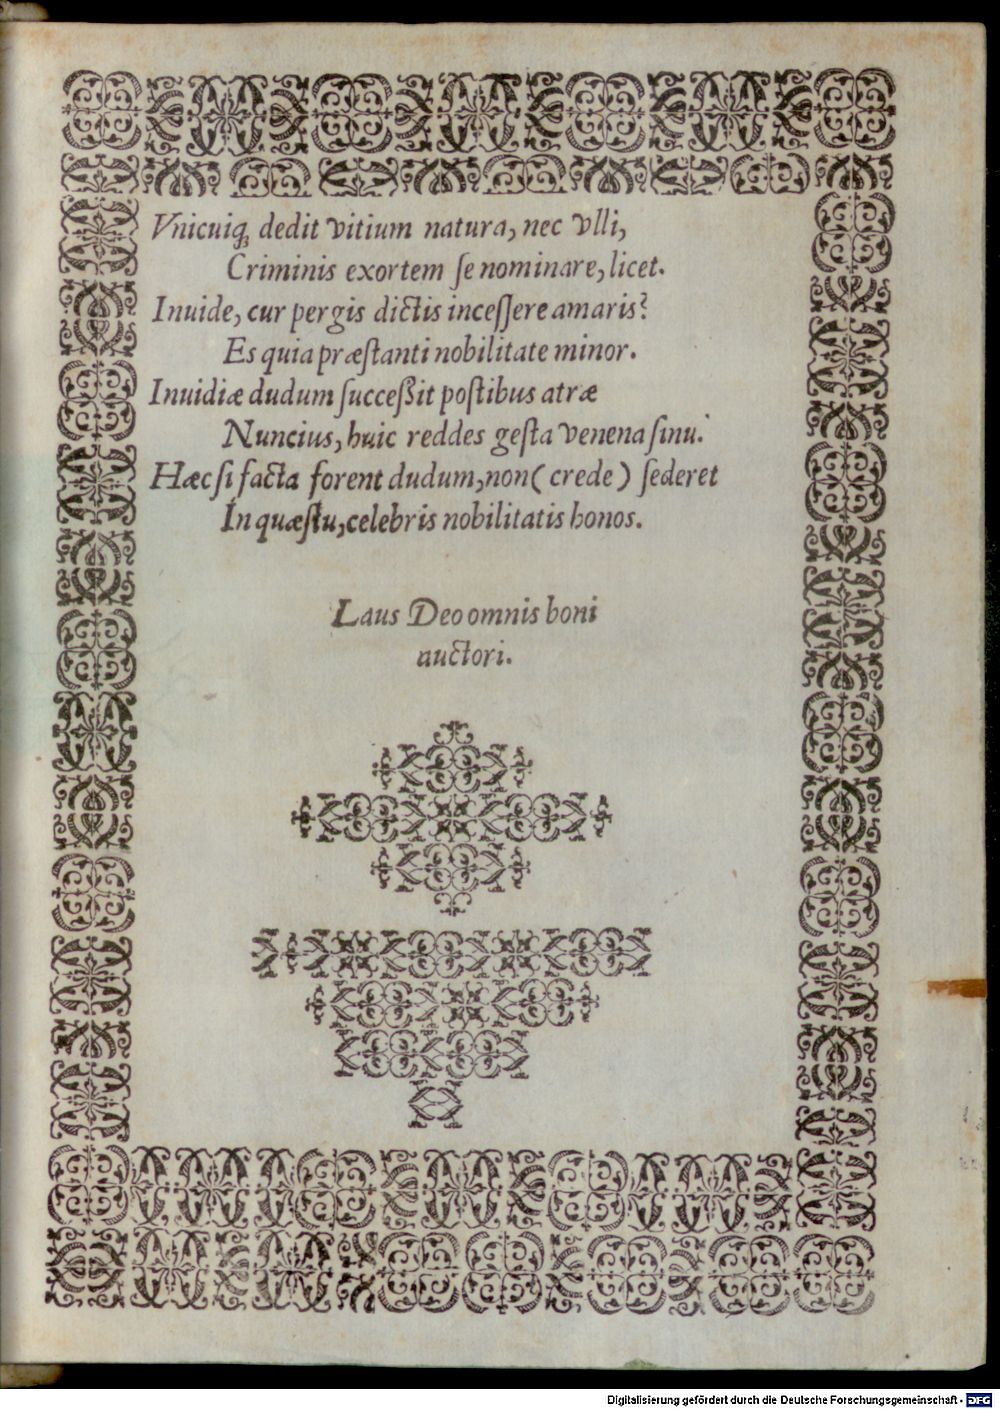 Vnicuiq́; dedit vitium natura, nec vlli,
Criminis exortem ſe nominare, licet.
Inuide, cur pergis dictis inceſſere amaris?
Es quia præſtanti nobilitate minor.
Inuidiæ dudum ſucceßit poſtibus atræ
Nuncius, huic reddes geſta venena ſinu.
Hæc ſi facta forent dudum, non (crede) ſederet
In quæſtu, celebris nobilitatis honos.
Laus Deo omnis boni
auctori.
Digitalisierung gefördert durch die Deutsche Forschungsgemeinschaft - DFG